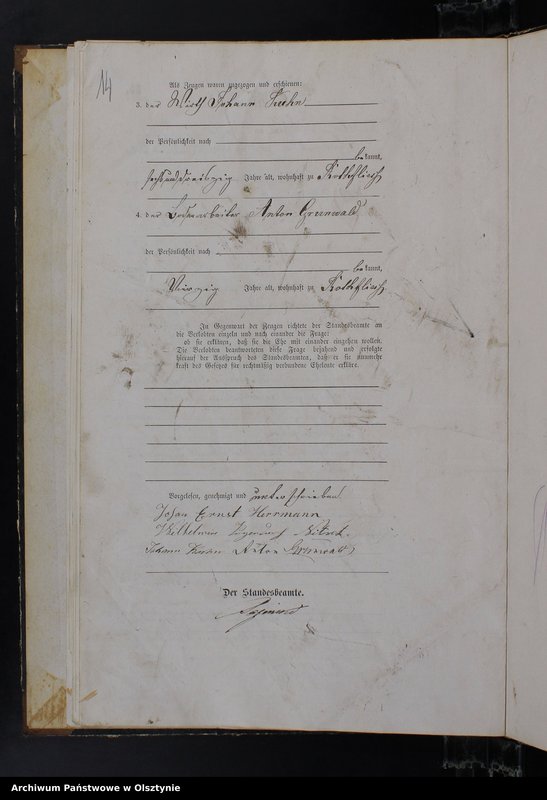 14
Als Zeugen waren zugezogen und erschienen:
3. der Wirth Johann Kuhn
der Persönlichkeit nach
bekannt,
sechsunddreißig Jahre alt, wohnhaft zu Rothfließ
4. der Losarbeiter Anton Grunwald
der Persönlichkeit nach
bekannt,
Vierzig Jahre alt, wohnhaft zu Rothfließ
In Gegenwart der Zeugen richtete der Standesbeamte an
die Verlobten einzeln und nach einander die Frage:
ob sie erklären, daß sie die Ehe mit einander eingehen wollen.
Die Verlobten beantworteten diese Frage bejahend und erfolgte
hierauf der Ausspruch des Standesbeamten, daß er sie nunmehr
kraft des Gesetzes für rechtmäßig verbundene Eheleute erkläre.
Vorgelesen, genehmigt und unterschrieben.
Johan Ernst Herrmann
Wilhelmine
Johann Kuhn Anton Grunwald
Der Standesbeamte.
Archiwum Państwowe w Olsztynie